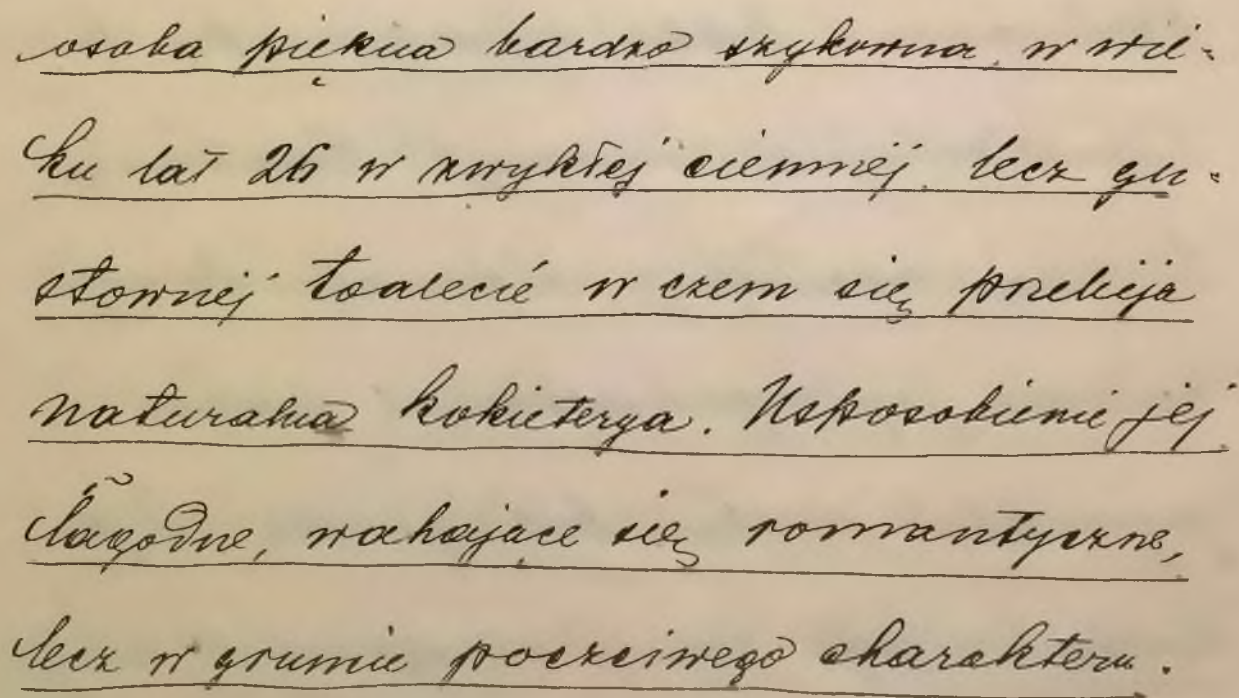 osoba piękna bardzo szykowna, w wie=
ku lat 26 w zwykłej ciemnéj, lecz gu=
stownéj toalecié w czem się przebija
naturalna kokieterya. Usposobienie jej
łagodne, wahające się romantyczne,
lecz w grunie poczciwego charakteru.